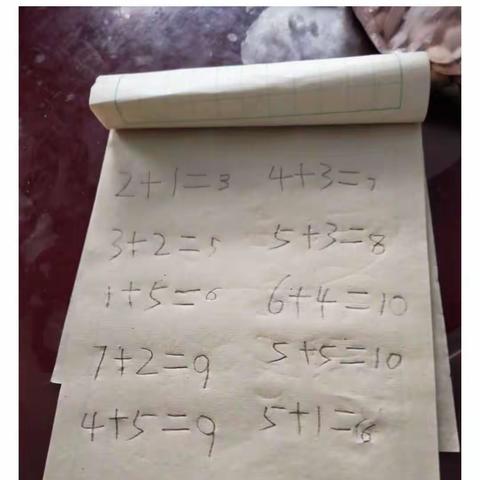 2+1=3 4+3=7
3+2=5 5+3=8
1+5=6 6+4=10
7+2=9 5+5=10
4+5=9 5+1=6